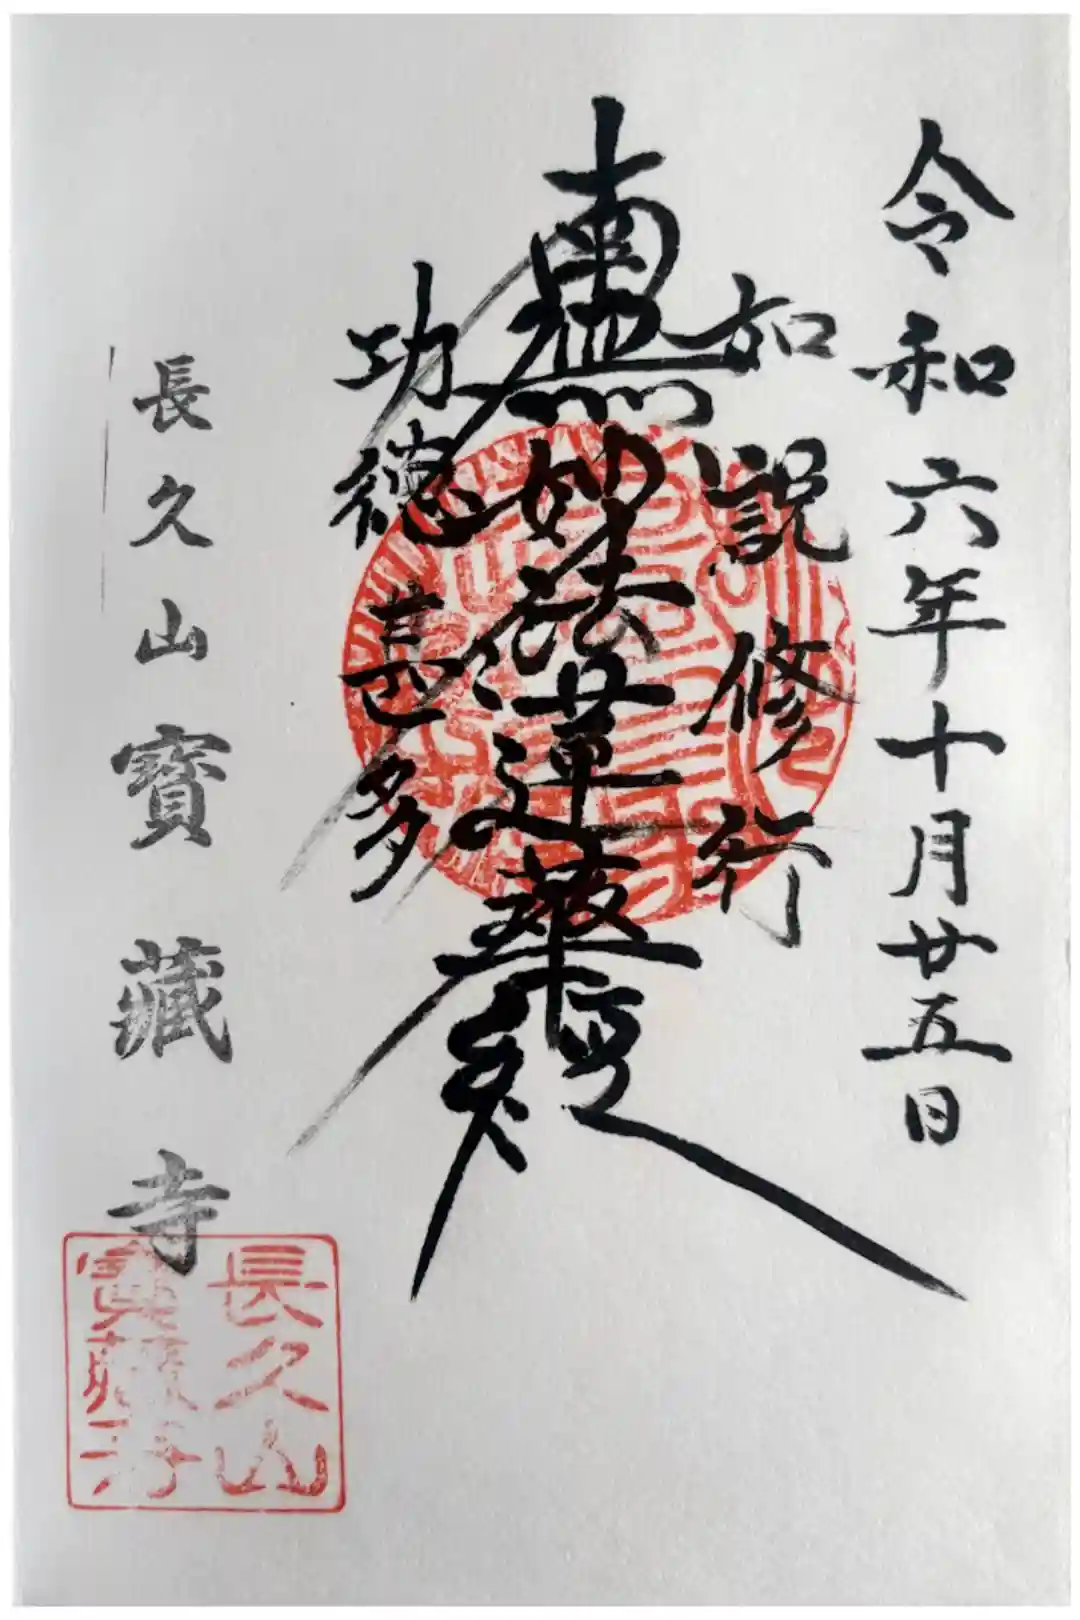 令和六年十月廿五日
如説修行
南無妙法蓮華経
功徳甚多
長久山寶藏寺
長久山
寶藏寺